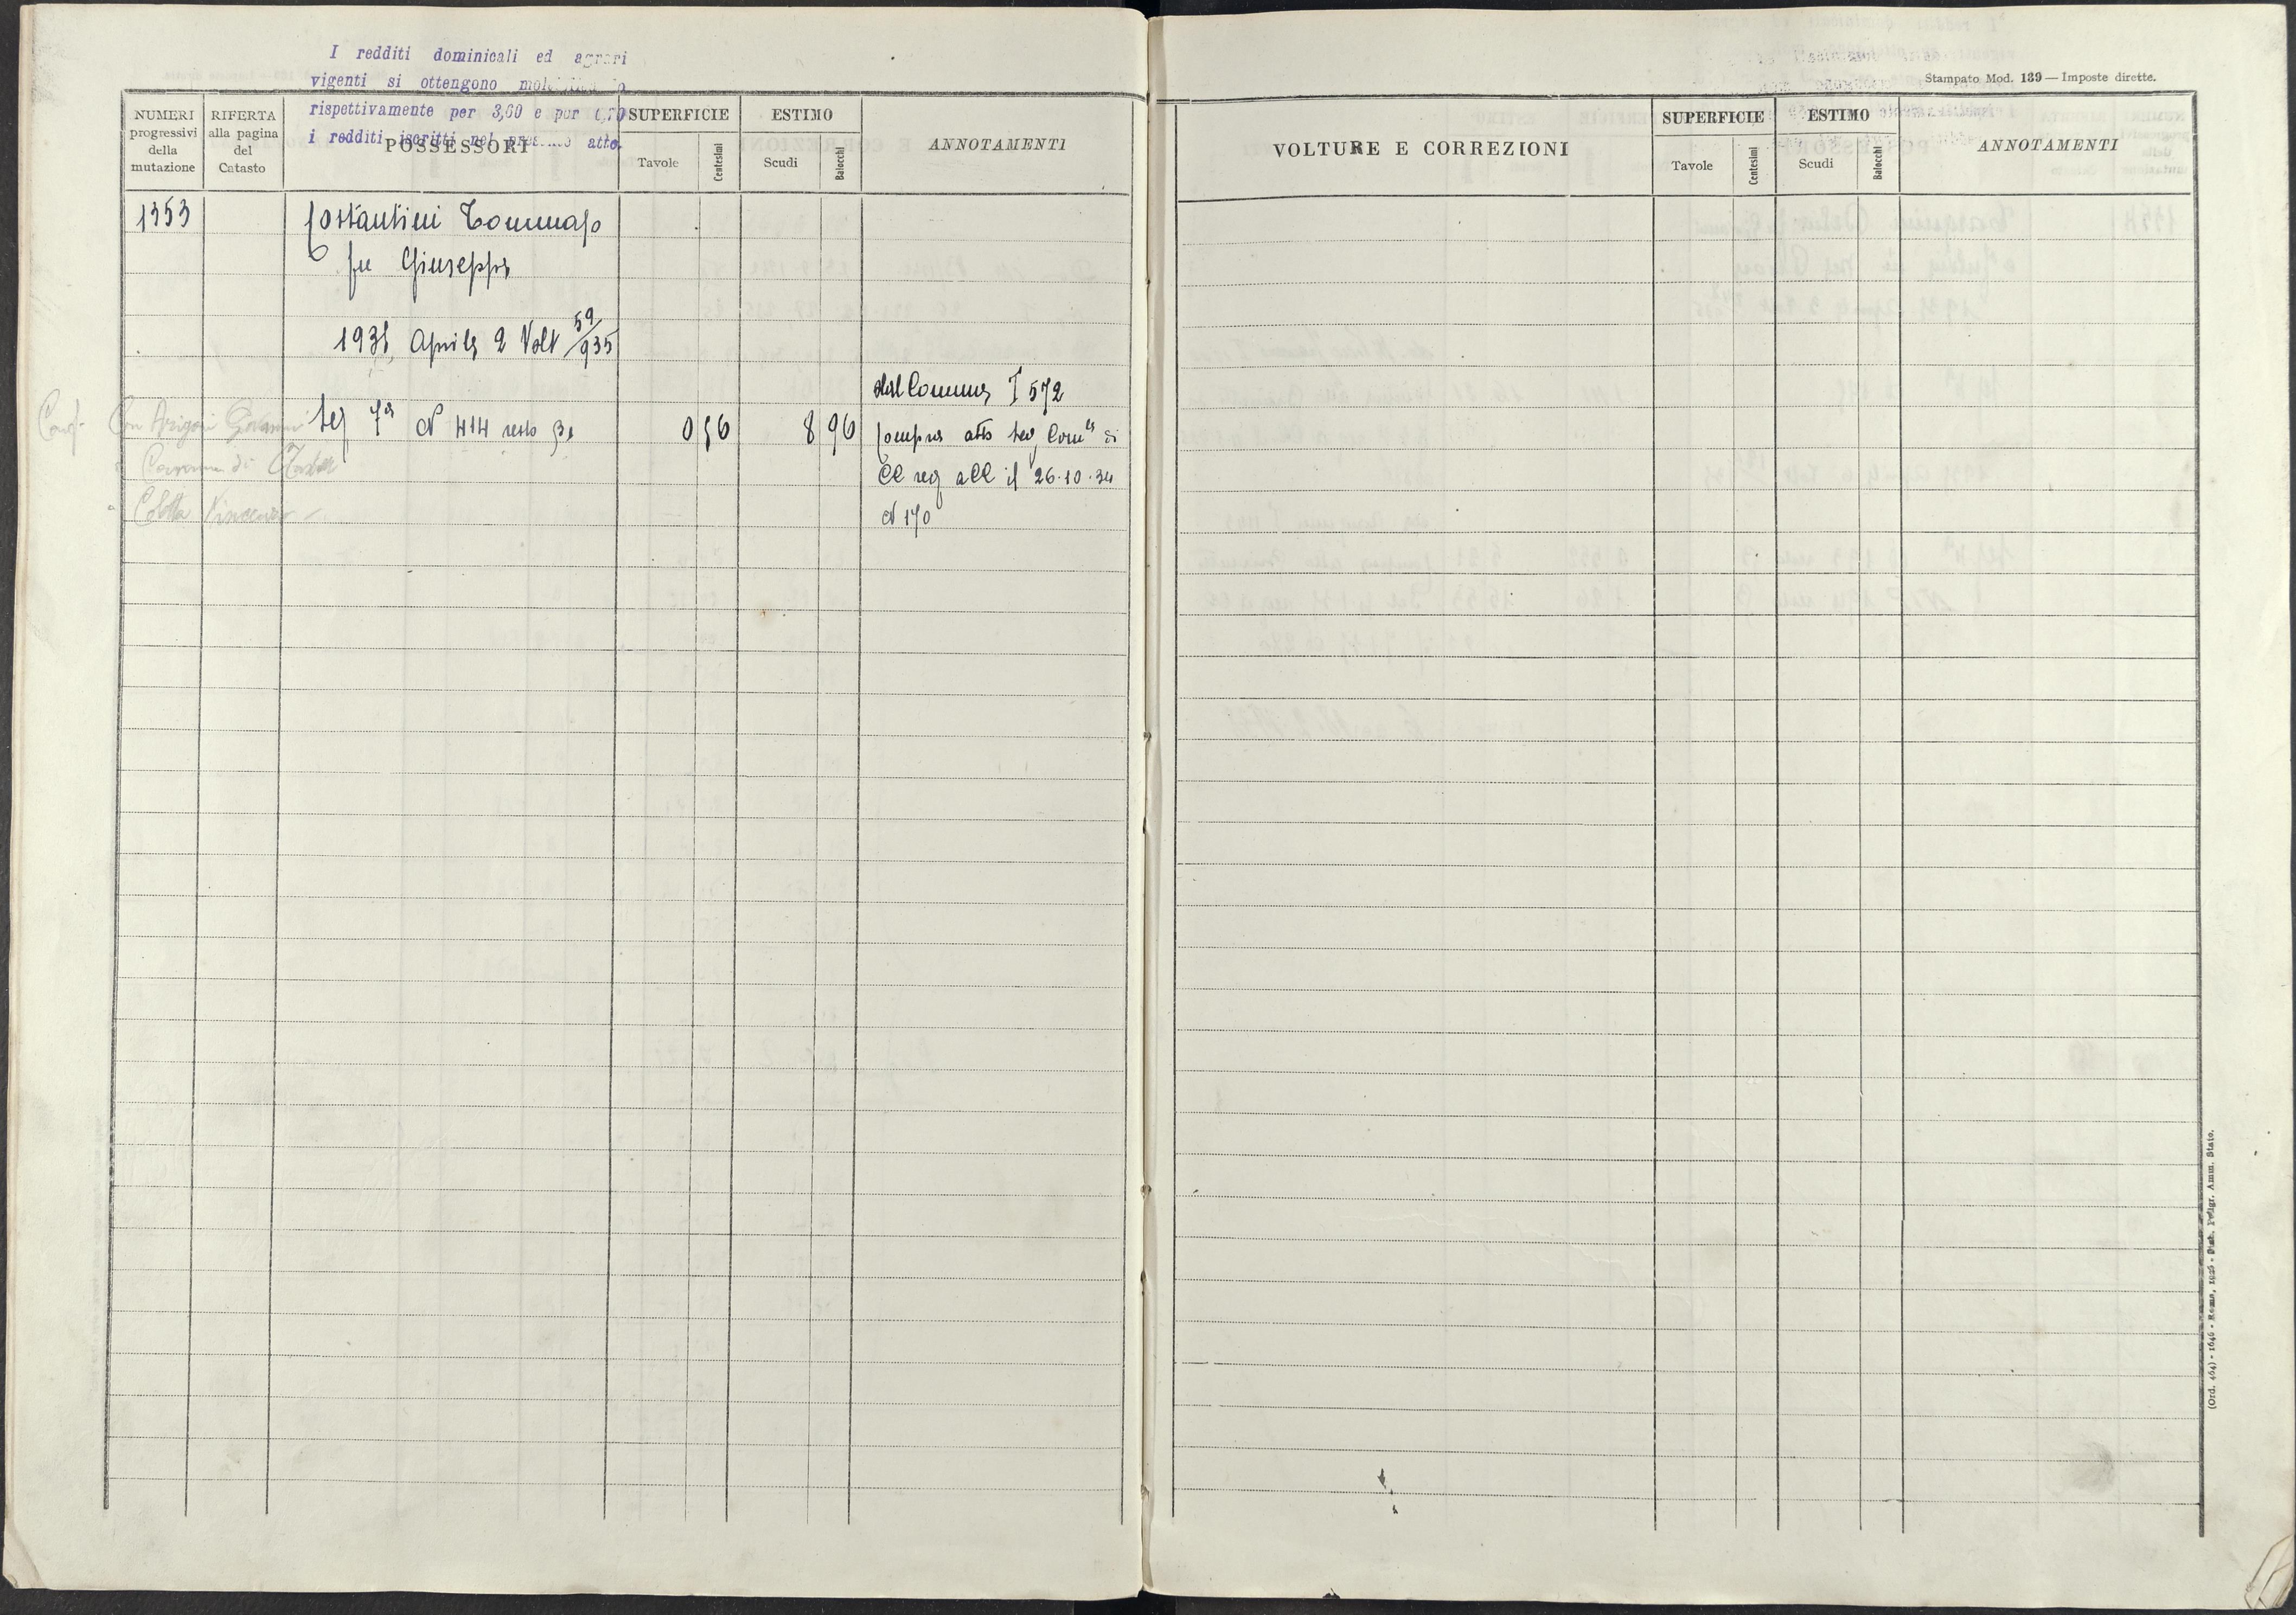 I redditi dominicali ed agrari
vigenti si ottengono
rispettivamente per 3,60 e per 0,70
i redditi iscritti nel presente atto.
Stampato Mod. 139 — Imposte dirette.
NUMERI progressivi della mutazione
RIFERTA alla pagina del Catasto
POSSESSORI
SUPERFICIE
Tavole
Centesimi
ESTIMO
Scudi
Baiocchi
ANNOTAMENTI
VOLTURE E CORREZIONI
SUPERFICIE
Tavole
Centesimi
ESTIMO
Scudi
Baiocchi
ANNOTAMENTI
1353
Costantini Tommaso
fu Giuseppe
1935 Aprile 2 Volt 59/935
dal Comune I 572
Conf. Con Arigoni Giovanni
Sez 7a N 414 resto 0 56 8 96 Compra atto Seg Com di
Comune di
CC reg all il 26.10.34
Coletta Vincenzo
N 170
(Ord. 464) - 1646 - Roma, 1926 - Stab. Poligr. Amm. Stato.